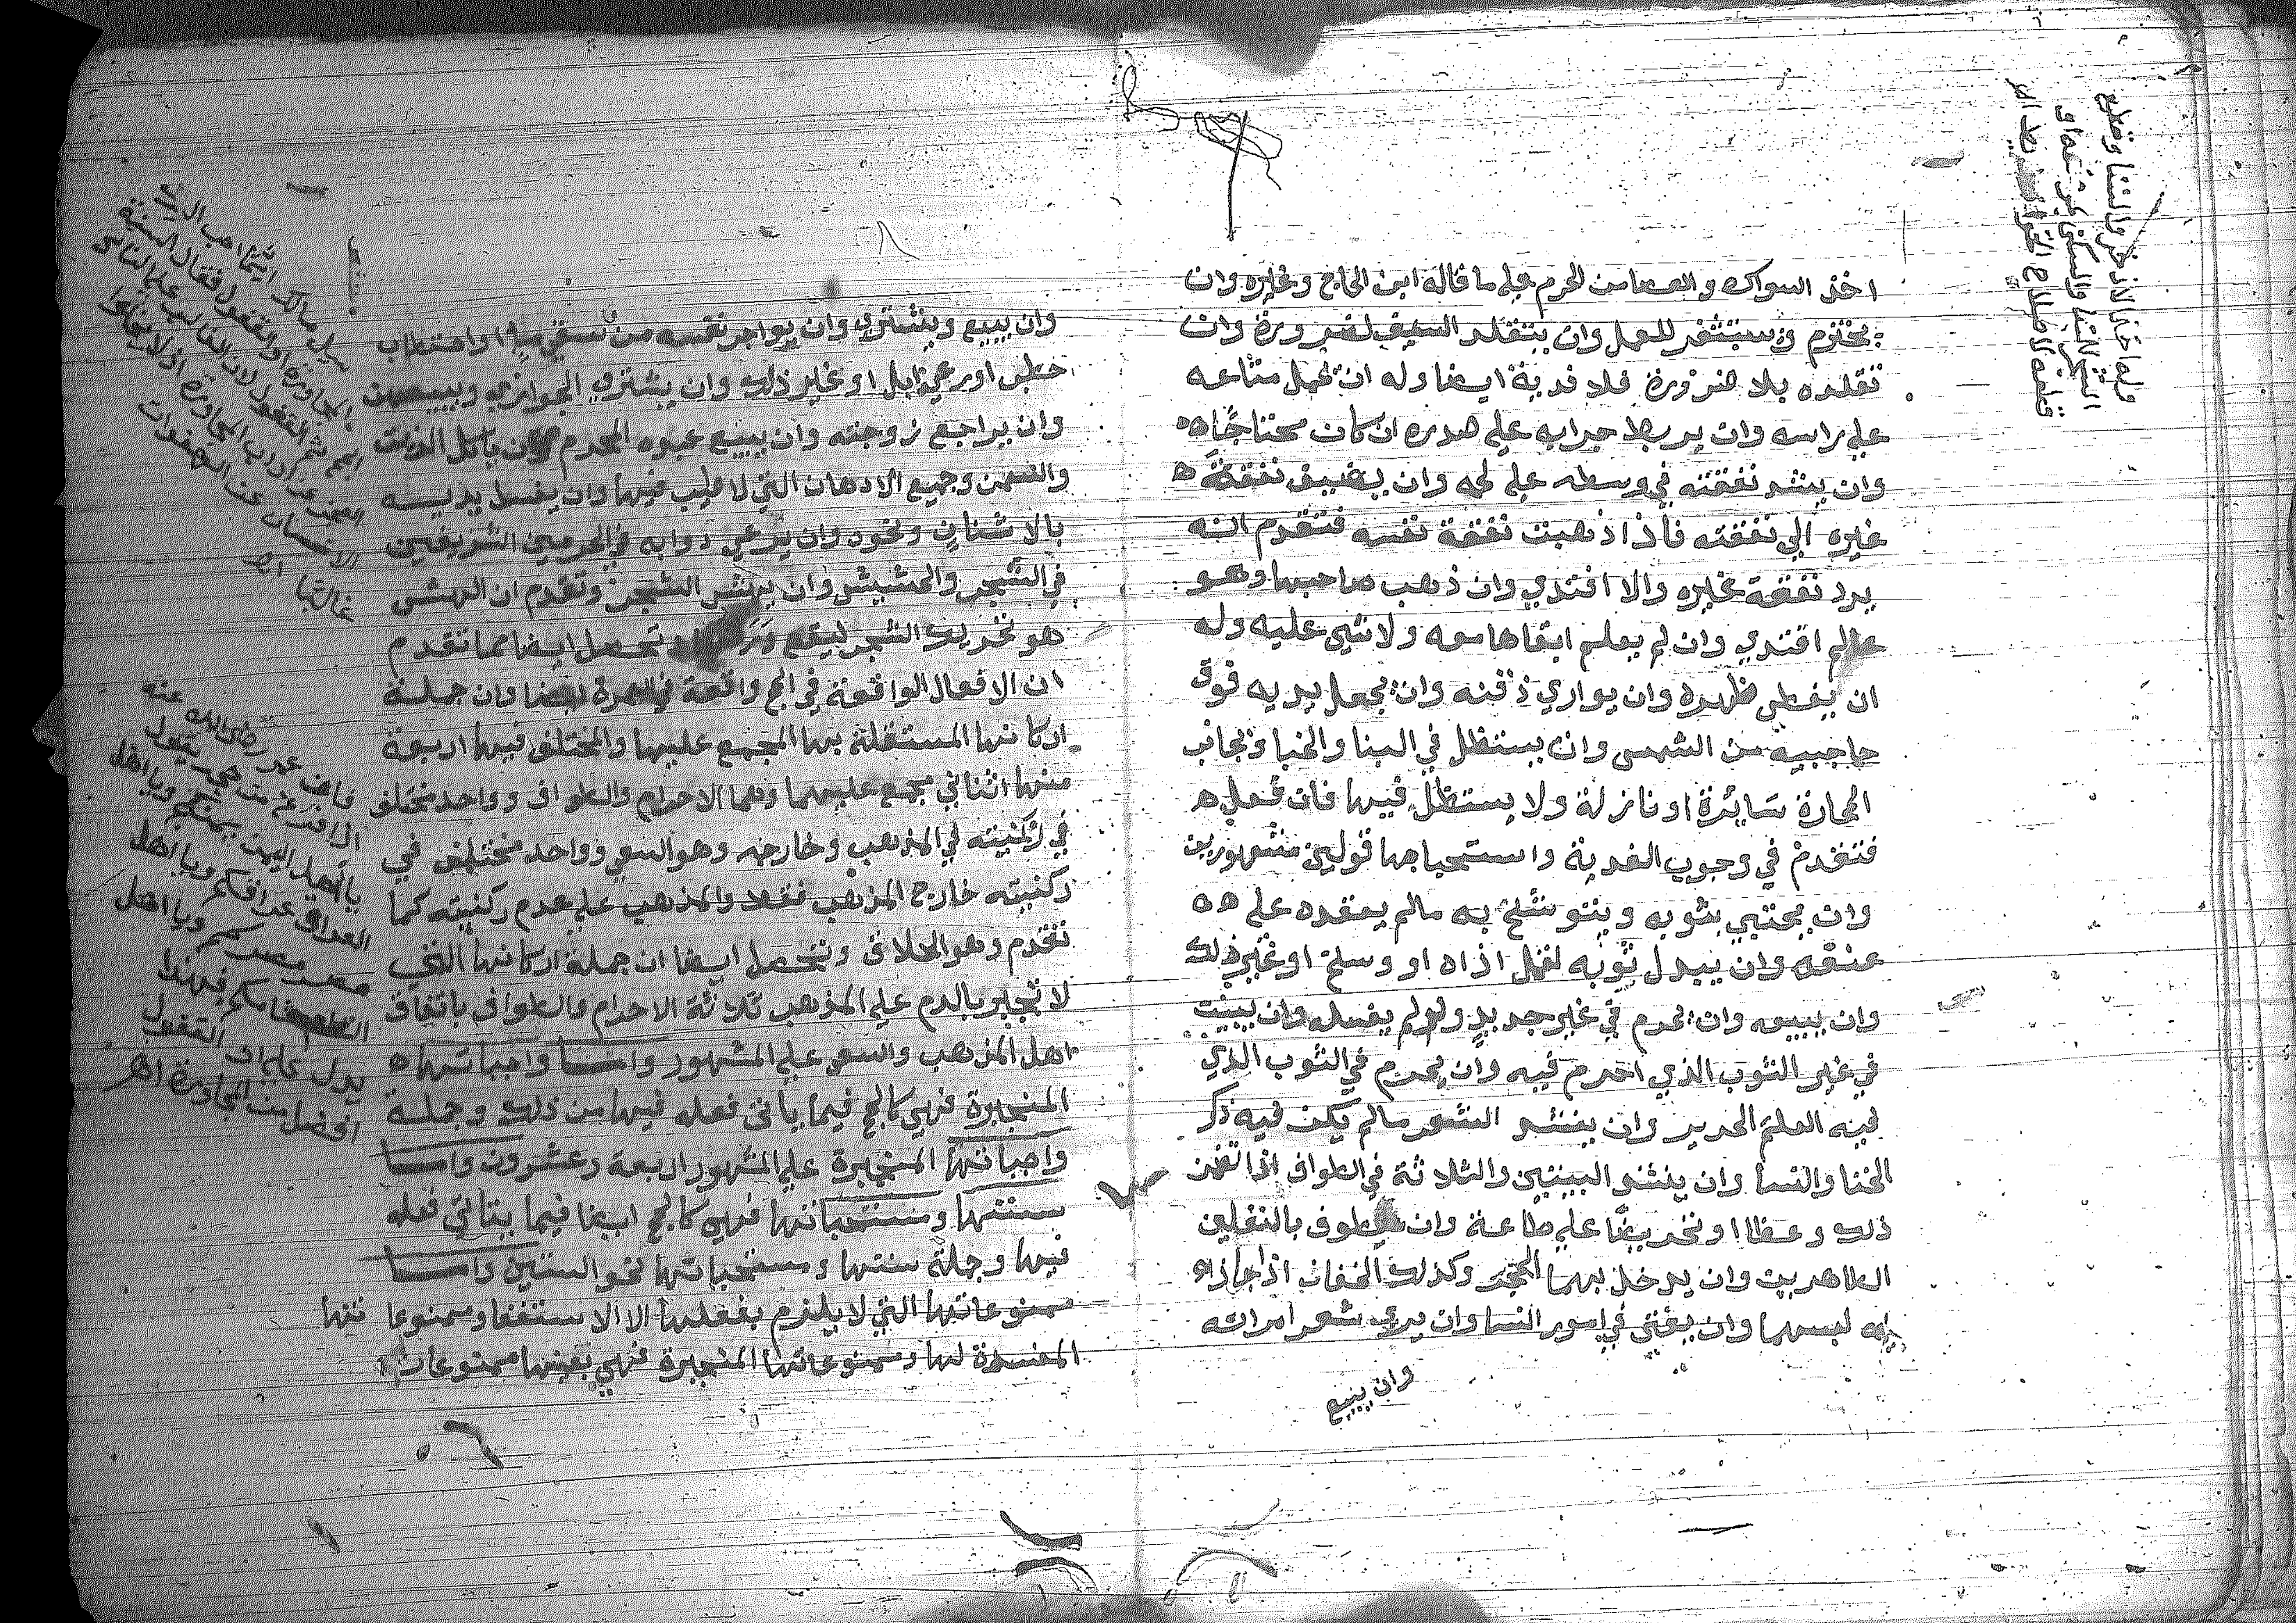 اخذ السواك والعصا من الحرم على ما قاله ابن الحاج وغيره وان
يحتزم ويستثفر للعمل وان يتقلد السيف لضرورة وان
تقلده بلا ضرورة فلا فدية ايضا وله ان يحمل متاعه
على راسه وان يربط جرابه على صدره ان كان محتاجا
وان يشد نفقته في وسطه على لحمه وان يضيف نفقة
غيره الى نفقته فاذا ذهبت نفقة نفسه فتقدم انه
يرد نفقة غيره والا افتدى وان ذهب صاحبها وهو
عالم افتدى وان لم يعلم ابقاها معه ولا شيء عليه وله
ان يغطي ظهره وان يواري ذقنه وان يجعل يديه فوق
حاجبيه من الشمس وان يستظل في البنا والخبا وبجانب
المحارة سائرة او نازلة ولا يستظل فيها فان فعل
فتقدم في وجوب الفدية واستحبابها قولين مشهورين
وان يحتبي بثوبه ويتوشح به مالم يعقده على
عنقه وان يبدل ثوبه لقمل اذاه او وسخ او غير ذلك
وان يبيعه وان يحرم في غير جديد ولو لم يغسله وان يبيت
في غير الثوب الذي احرم فيه وان يحرم في الثوب الذي
فيه العلم الحرير وان ينشد الشعر مالم يكن فيه ذكر
الخنا والنسا وان ينشد البيتين والثلاثة في الطواف اذا تضمن
ذلك وعظا او تحريضا على طاعة وان يطوف بالنعلين
الطاهرين وان يدخل بهما الحجر وكذلك الخفان اذا جاز له
لبسهما وان يفتي في امور النسا وان يرى شعر امراته
وان يبيع
وان يبيع ويشتري وان يواجر نفسه من سقي ما او احتطاب
حطب او رعي ابل او غير ذلك وان يشتري الجواري ويبيعهن
وان يراجع زوجته وان يبيع عبده المحرم وان ياكل الزيت
والسمن وجميع الادهان التي لا طيب فيها وان يغسل يديه
بالاشنان ونحوه وان يرعى دوابه في الحرمين الشريفين
في الشجر والحشيش وان يهش الشجر وتقدم ان الهش
هو تحريك الشجر ليقع وتحصل ايضا مما تقدم
ان الافعال الواقعة في الحج واقعة في العمرة ايضا وان جملة
اركانها المستقلة بها المجمع عليها والمختلف فيها اربعة
منها اثنان مجمع عليهما وهما الاحرام والطواف وواحد مختلف
في ركنيته في المذهب وخارجه وهو السعي وواحد مختلف في
ركنيته خارج المذهب فقط والمذهب على عدم ركنيته كما
تقدم وهو الحلاق وتحصل ايضا ان جملة اركانها التي
لا تنجبر بالدم على المذهب ثلاثة الاحرام والطواف باتفاق
اهل المذهب والسعي على المشهور واما واجباتها
المنجبرة فهي كالحج فيما ياتى فعله فيها من ذلك وجملة
واجباتها المنجبرة على المشهور اربعة وعشرون واما
سننها ومستحباتها فهي كالحج ايضا فيما يتاتى فعله
فيها وجملة سننها ومستحباتها نحو الستين واما
ممنوعاتها التي لا يلزم بفعلها الا الاستغفار وممنوعاتها
المفسدة لها وممنوعاتها المنجبرة فهي بعينها ممنوعات
سيل مالك ايما احب اليك
المجاورة او القفول فقال السنة
الحج ثم القفول لان الغالب على الناس
العجز عن اداب المجاورة
فان عمر رضي الله عنه
يا اهل اليمن يمنكم ويا اهل
العراق عراقكم ويا اهل
مصر مصركم ويا اهل
الشام شامكم فهذا
يدل على ان القفول
افضل من المجاورة اهـ